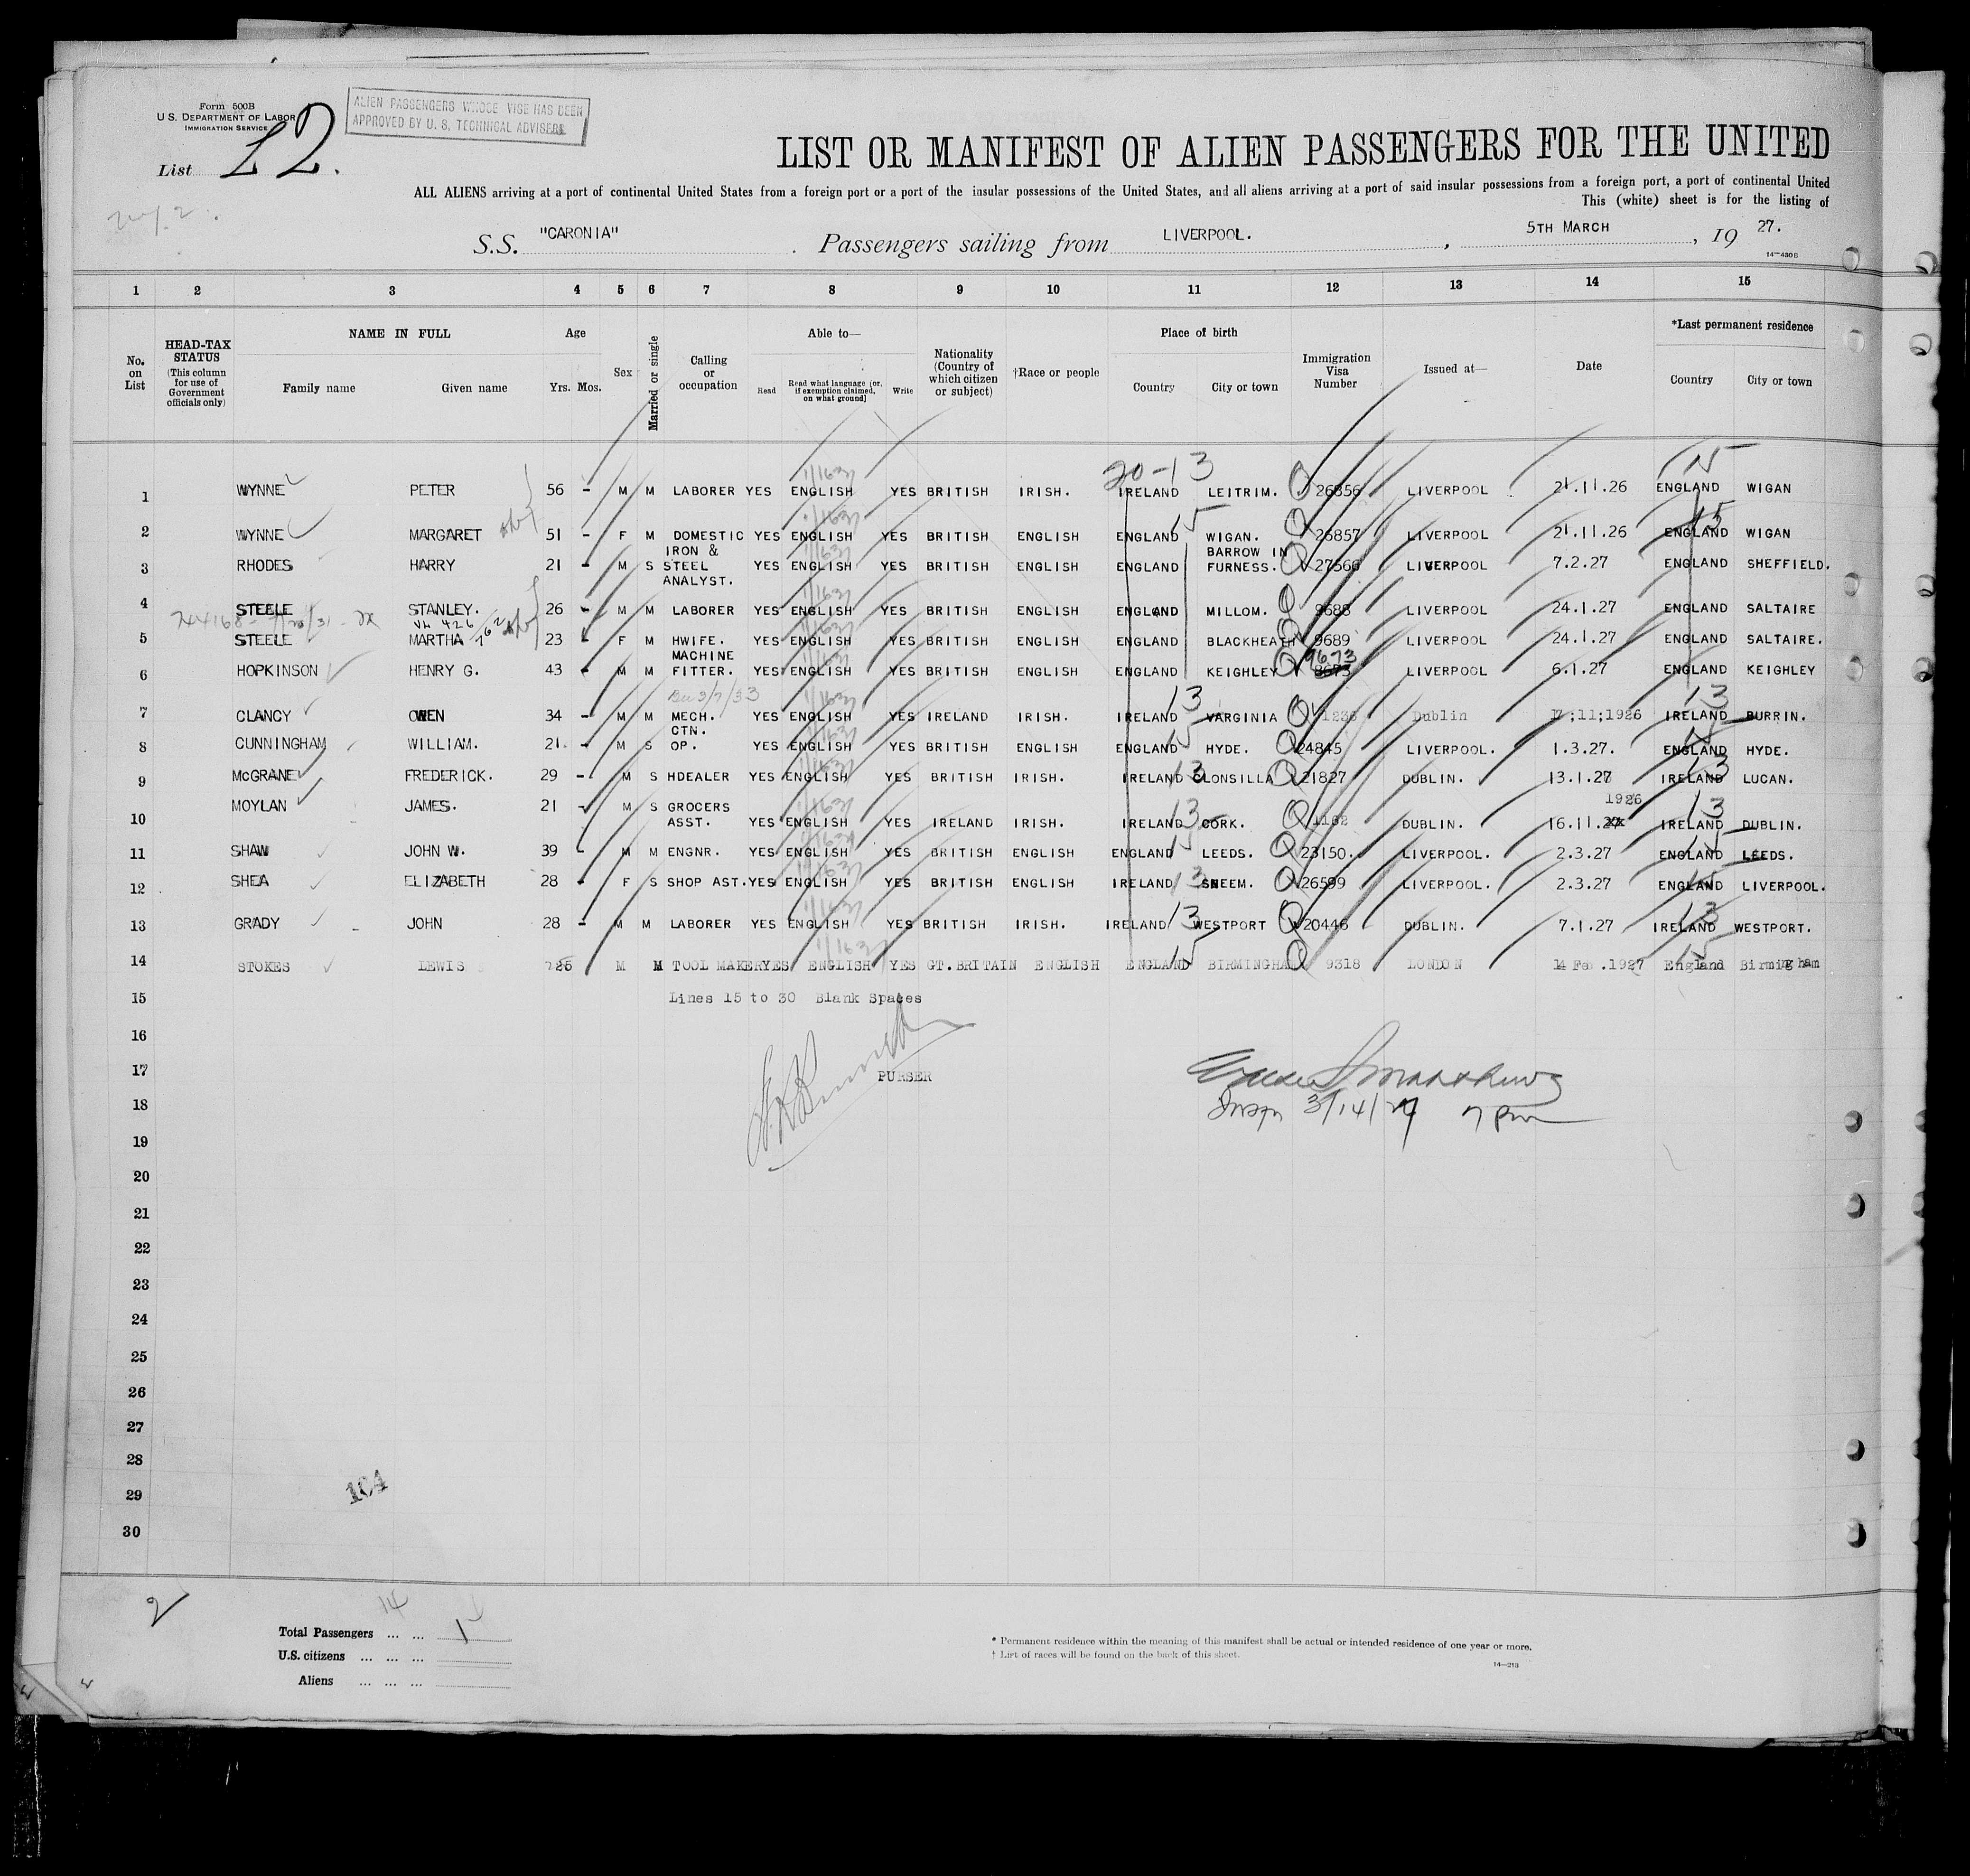 Form 500B
U.S. DEPARTMENT OF LABOR
IMMIGRATION SERVICE
ALIEN PASSENGERS WHOSE VISE HAS BEEN
APPROVED BY U. S. TECHNICAL ADVISERS
List L2.
LIST OR MANIFEST OF ALIEN PASSENGERS FOR THE UNITED
ALL ALIENS arriving at a port of continental United States from a foreign port or a port of the insular possessions of the United States, and all aliens arriving at a port of said insular possessions from a foreign port, a port of continental United
This (white) sheet is for the listing of
S.S. "CARONIA" . Passengers sailing from LIVERPOOL. , 5TH MARCH , 19 27.
14—430B
1 2 3 4 5 6 7 8 9 10 11 12 13 14 15
No. on List
HEAD-TAX STATUS (This column for use of Government officials only)
NAME IN FULL
Family name Given name
Age
Yrs. Mos.
Sex
Married or single
Calling or occupation
Able to—
Read
Read what language (or, if exemption claimed, on what ground)
Write
Nationality (Country of which citizen or subject)
†Race or people
Place of birth
Country City or town
Immigration Visa Number
Issued at—
Date
*Last permanent residence
Country City or town
20-13
1 WYNNE PETER 56 - M M LABORER YES ENGLISH YES BRITISH IRISH. IRELAND LEITRIM. 26856 LIVERPOOL 21.11.26 ENGLAND WIGAN
2 WYNNE MARGARET 51 - F M DOMESTIC YES ENGLISH YES BRITISH ENGLISH ENGLAND WIGAN. 26857 LIVERPOOL 21.11.26 ENGLAND WIGAN
3 RHODES HARRY 21 - M S IRON & STEEL ANALYST. YES ENGLISH YES BRITISH ENGLISH ENGLAND BARROW IN FURNESS. 27566 LIVERPOOL 7.2.27 ENGLAND SHEFFIELD.
4 STEELE STANLEY. 26 - M M LABORER YES ENGLISH YES BRITISH ENGLISH ENGLAND MILLOM. 9688 LIVERPOOL 24.1.27 ENGLAND SALTAIRE
5 STEELE MARTHA 23 - F M HWIFE. YES ENGLISH YES BRITISH ENGLISH ENGLAND BLACKHEATH 9689 LIVERPOOL 24.1.27 ENGLAND SALTAIRE.
6 HOPKINSON HENRY G. 43 - M M MACHINE FITTER. YES ENGLISH YES BRITISH ENGLISH ENGLAND KEIGHLEY 9673 LIVERPOOL 6.1.27 ENGLAND KEIGHLEY
7 CLANCY OWEN 34 - M M MECH. YES ENGLISH YES IRELAND IRISH. IRELAND VARGINIA 1236 Dublin 17;11;1926 IRELAND BURRIN.
8 CUNNINGHAM WILLIAM. 21. - M S CTN. OP. YES ENGLISH YES BRITISH ENGLISH ENGLAND HYDE. 24845 LIVERPOOL. 1.3.27. ENGLAND HYDE.
9 McGRANE FREDERICK. 29 - M S HDEALER YES ENGLISH YES BRITISH IRISH. IRELAND CLONSILLA 21827 DUBLIN. 13.1.27 IRELAND LUCAN.
10 MOYLAN JAMES. 21 - M S GROCERS ASST. YES ENGLISH YES IRELAND IRISH. IRELAND CORK. 1162 DUBLIN. 16.11. 1926 IRELAND DUBLIN.
11 SHAW JOHN W. 39 - M M ENGNR. YES ENGLISH YES BRITISH ENGLISH ENGLAND LEEDS. 23150. LIVERPOOL. 2.3.27 ENGLAND LEEDS.
12 SHEA ELIZABETH 28 - F S SHOP AST. YES ENGLISH YES BRITISH ENGLISH IRELAND SNEEM. 26599 LIVERPOOL. 2.3.27 ENGLAND LIVERPOOL.
13 GRADY JOHN 28 - M M LABORER YES ENGLISH YES BRITISH IRISH. IRELAND WESTPORT 20446 DUBLIN. 7.1.27 IRELAND WESTPORT.
14 STOKES LEWIS M M TOOL MAKER YES ENGLISH YES GT.BRITAIN ENGLISH ENGLAND BIRMINGHAM 9318 LONDON 14 Feb.1927 England Birmingham
15 Lines 15 to 30 Blank Spaces
16
17 PURSER
18 3/14/27 7 Pm
19
20
21
22
23
24
25
26
27
28
29
30
104
2
14
Total Passengers ... ...
U.S. citizens ... ... ...
Aliens ... ... ...
* Permanent residence within the meaning of this manifest shall be actual or intended residence of one year or more.
† List of races will be found on the back of this sheet.
14—213